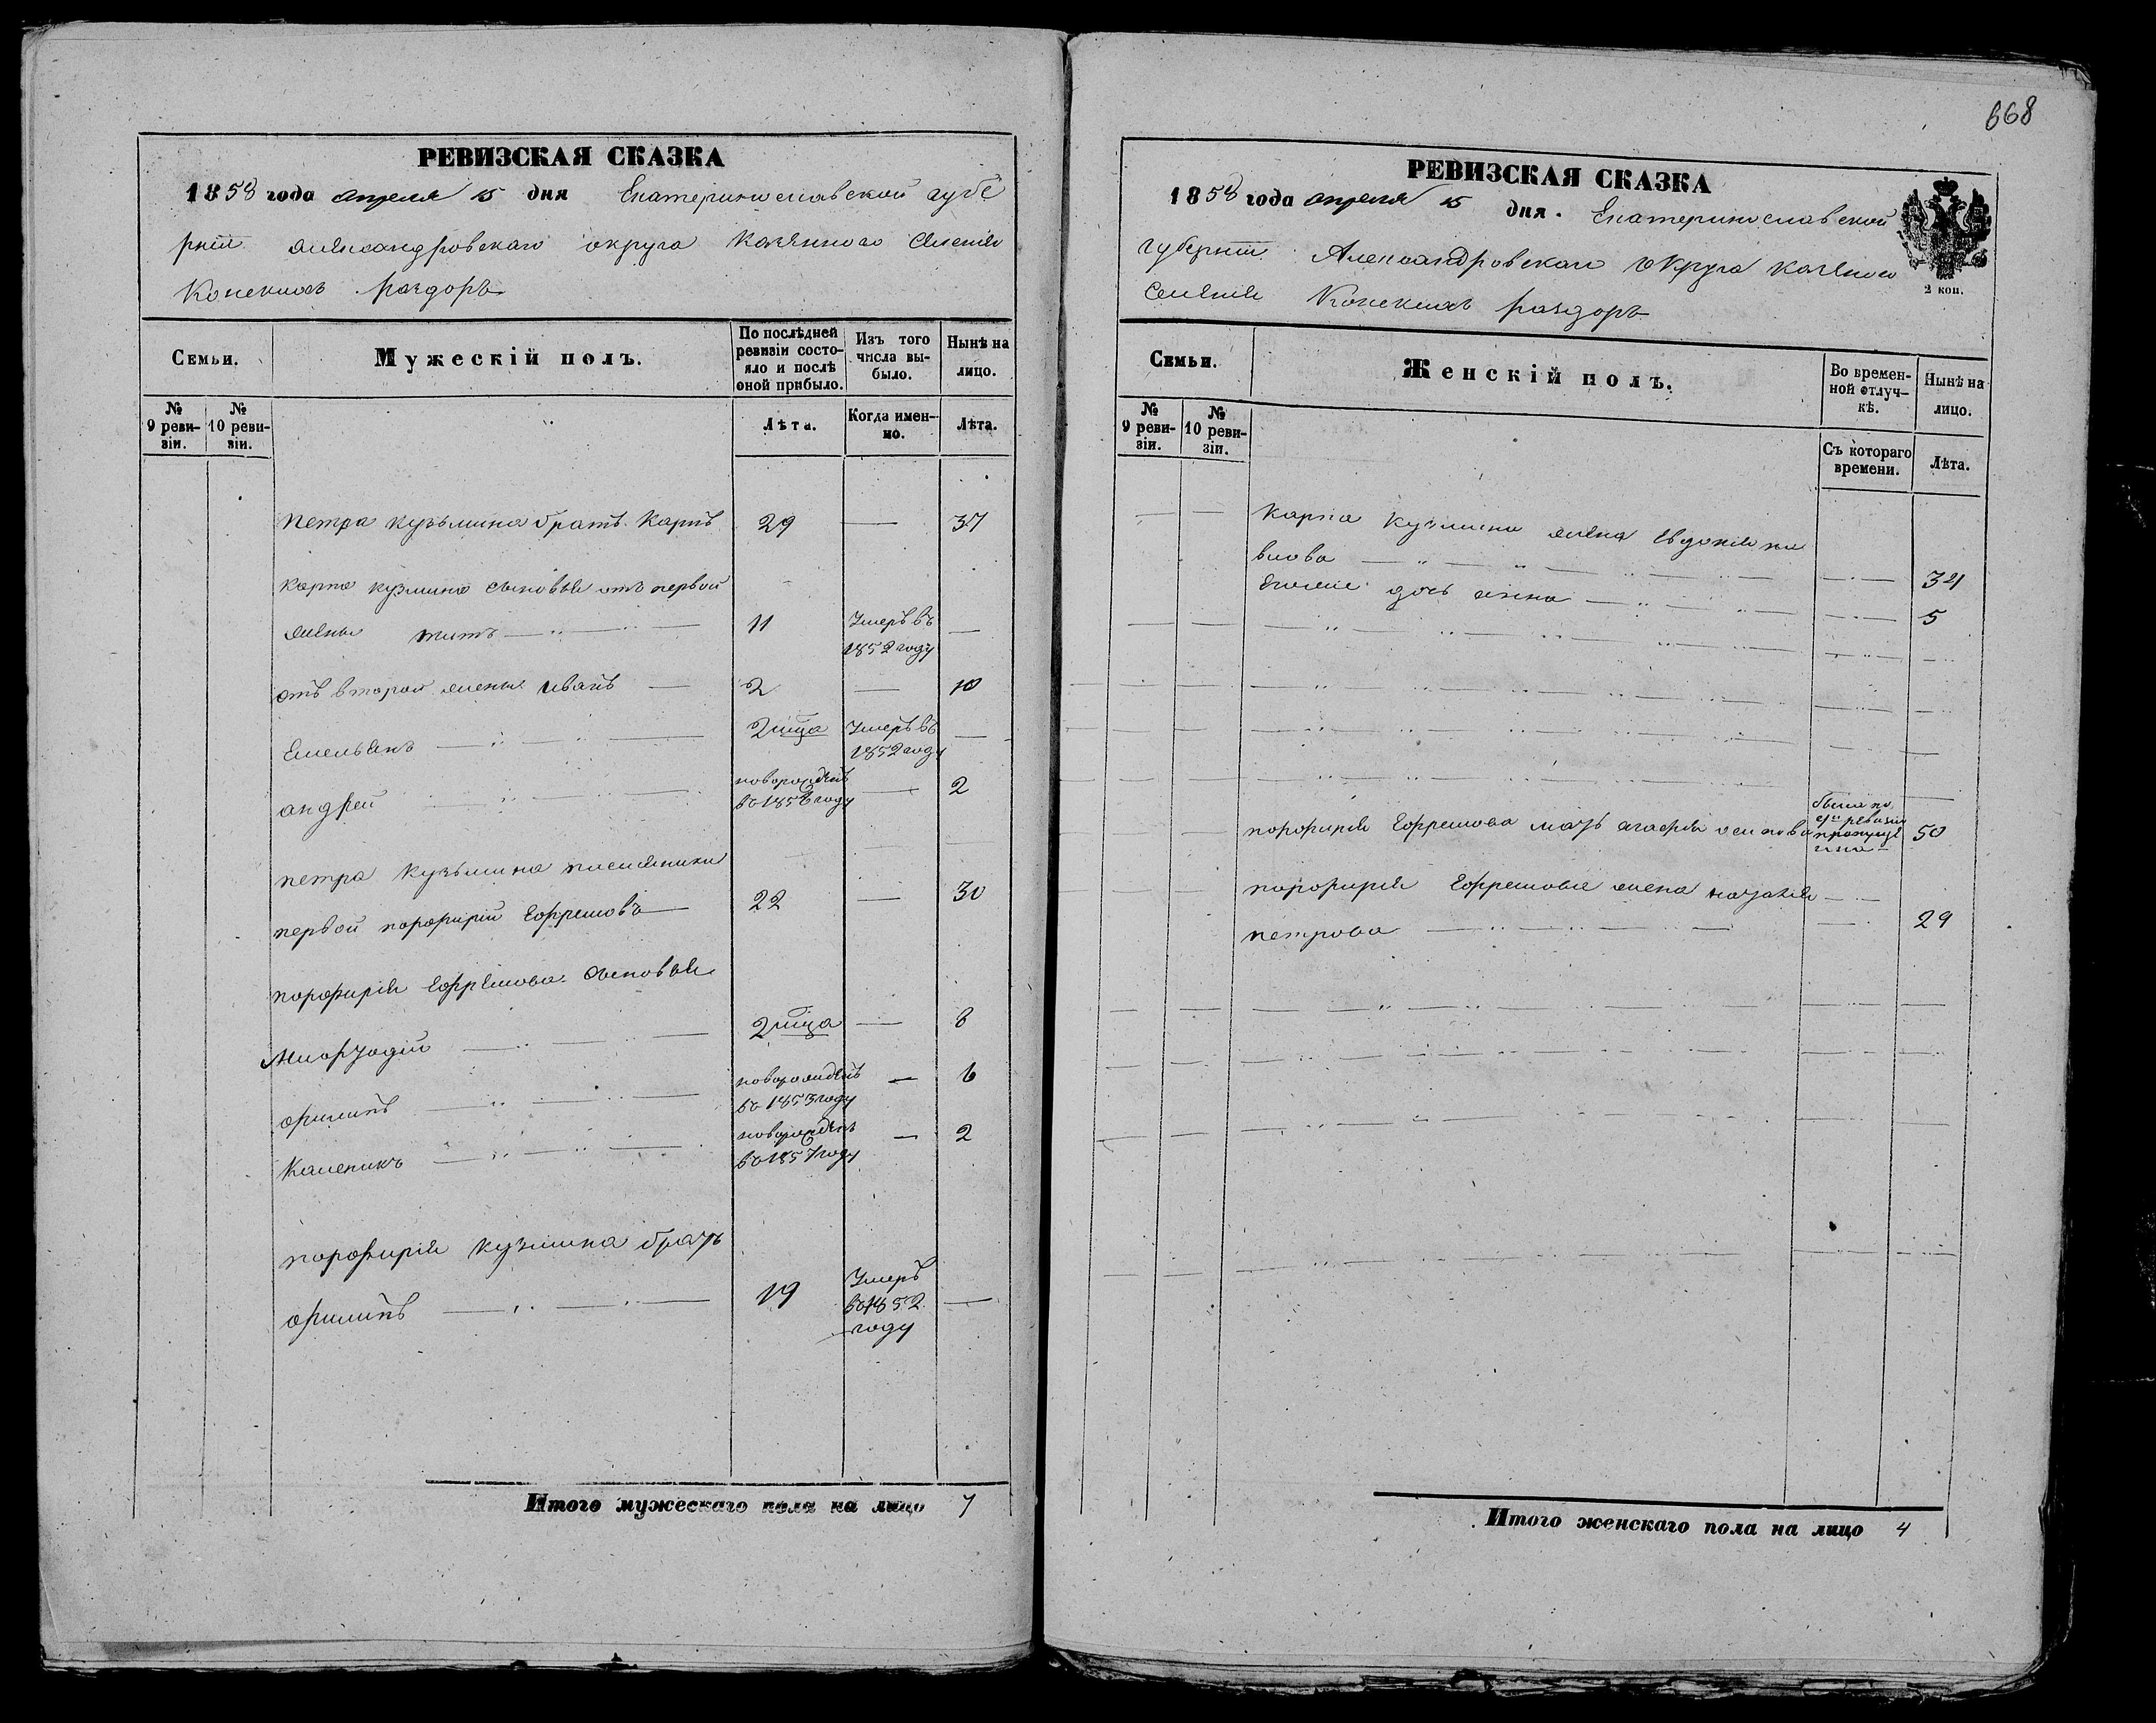 РЕВИЗСКАЯ СКАЗКА
1858 года апреля 15 дня Екатеринославской губе
рніи Александровскаго округа казеннаго селенія
Конскихъ раздоръ
Семьи.
Мужескій полъ.
По послѣдней ревизіи состояло и послѣ оной прибыло.
Изъ того числа выбыло.
Нынѣ на лицо.
№ 9 ревизіи.
№ 10 ревизіи.
Лѣта.
Когда именно.
Лѣта.
петра кузьмина братъ Карпъ 29 — 37
карпа кузмина сыновья отъ первой
жены титъ 11 Умеръ въ 1852 году —
отъ второй жены иванъ — 2 — 10
Емельянъ 2 мца Умеръ въ 1852 году —
андрей новорожденъ въ 1856 году — 2
петра кузьмина племянники
первой порфирій Ефремовъ 22 — 30
порфирія Ефремова сыновья
2 мца — 8
филипъ новорожденъ въ 1853 году — 6
Каленикъ новорожденъ въ 1857 году — 2
порфирія кузмина братъ
филипъ 19 Умеръ въ 1852 году —
Итого мужескаго пола на лицо 7
668
РЕВИЗСКАЯ СКАЗКА
1858 года апреля 15 дня. Екатеринославской
губерніи Александровскаго округа казеннаго
селенія Конскихъ раздоръ
2 коп.
Семьи.
Женскій полъ.
Во временной отлучкѣ.
Нынѣ на лицо.
№ 9 ревизіи.
№ 10 ревизіи.
Съ котораго времени.
Лѣта.
карпа Кузмина жена евдокія па
влова 34
дочь анна 5
порфирія Ефремова мать агафія осипова была по ревизіи 50
порфирія Ефремова жена наталія
петрова 29
Итого женскаго пола на лицо 4